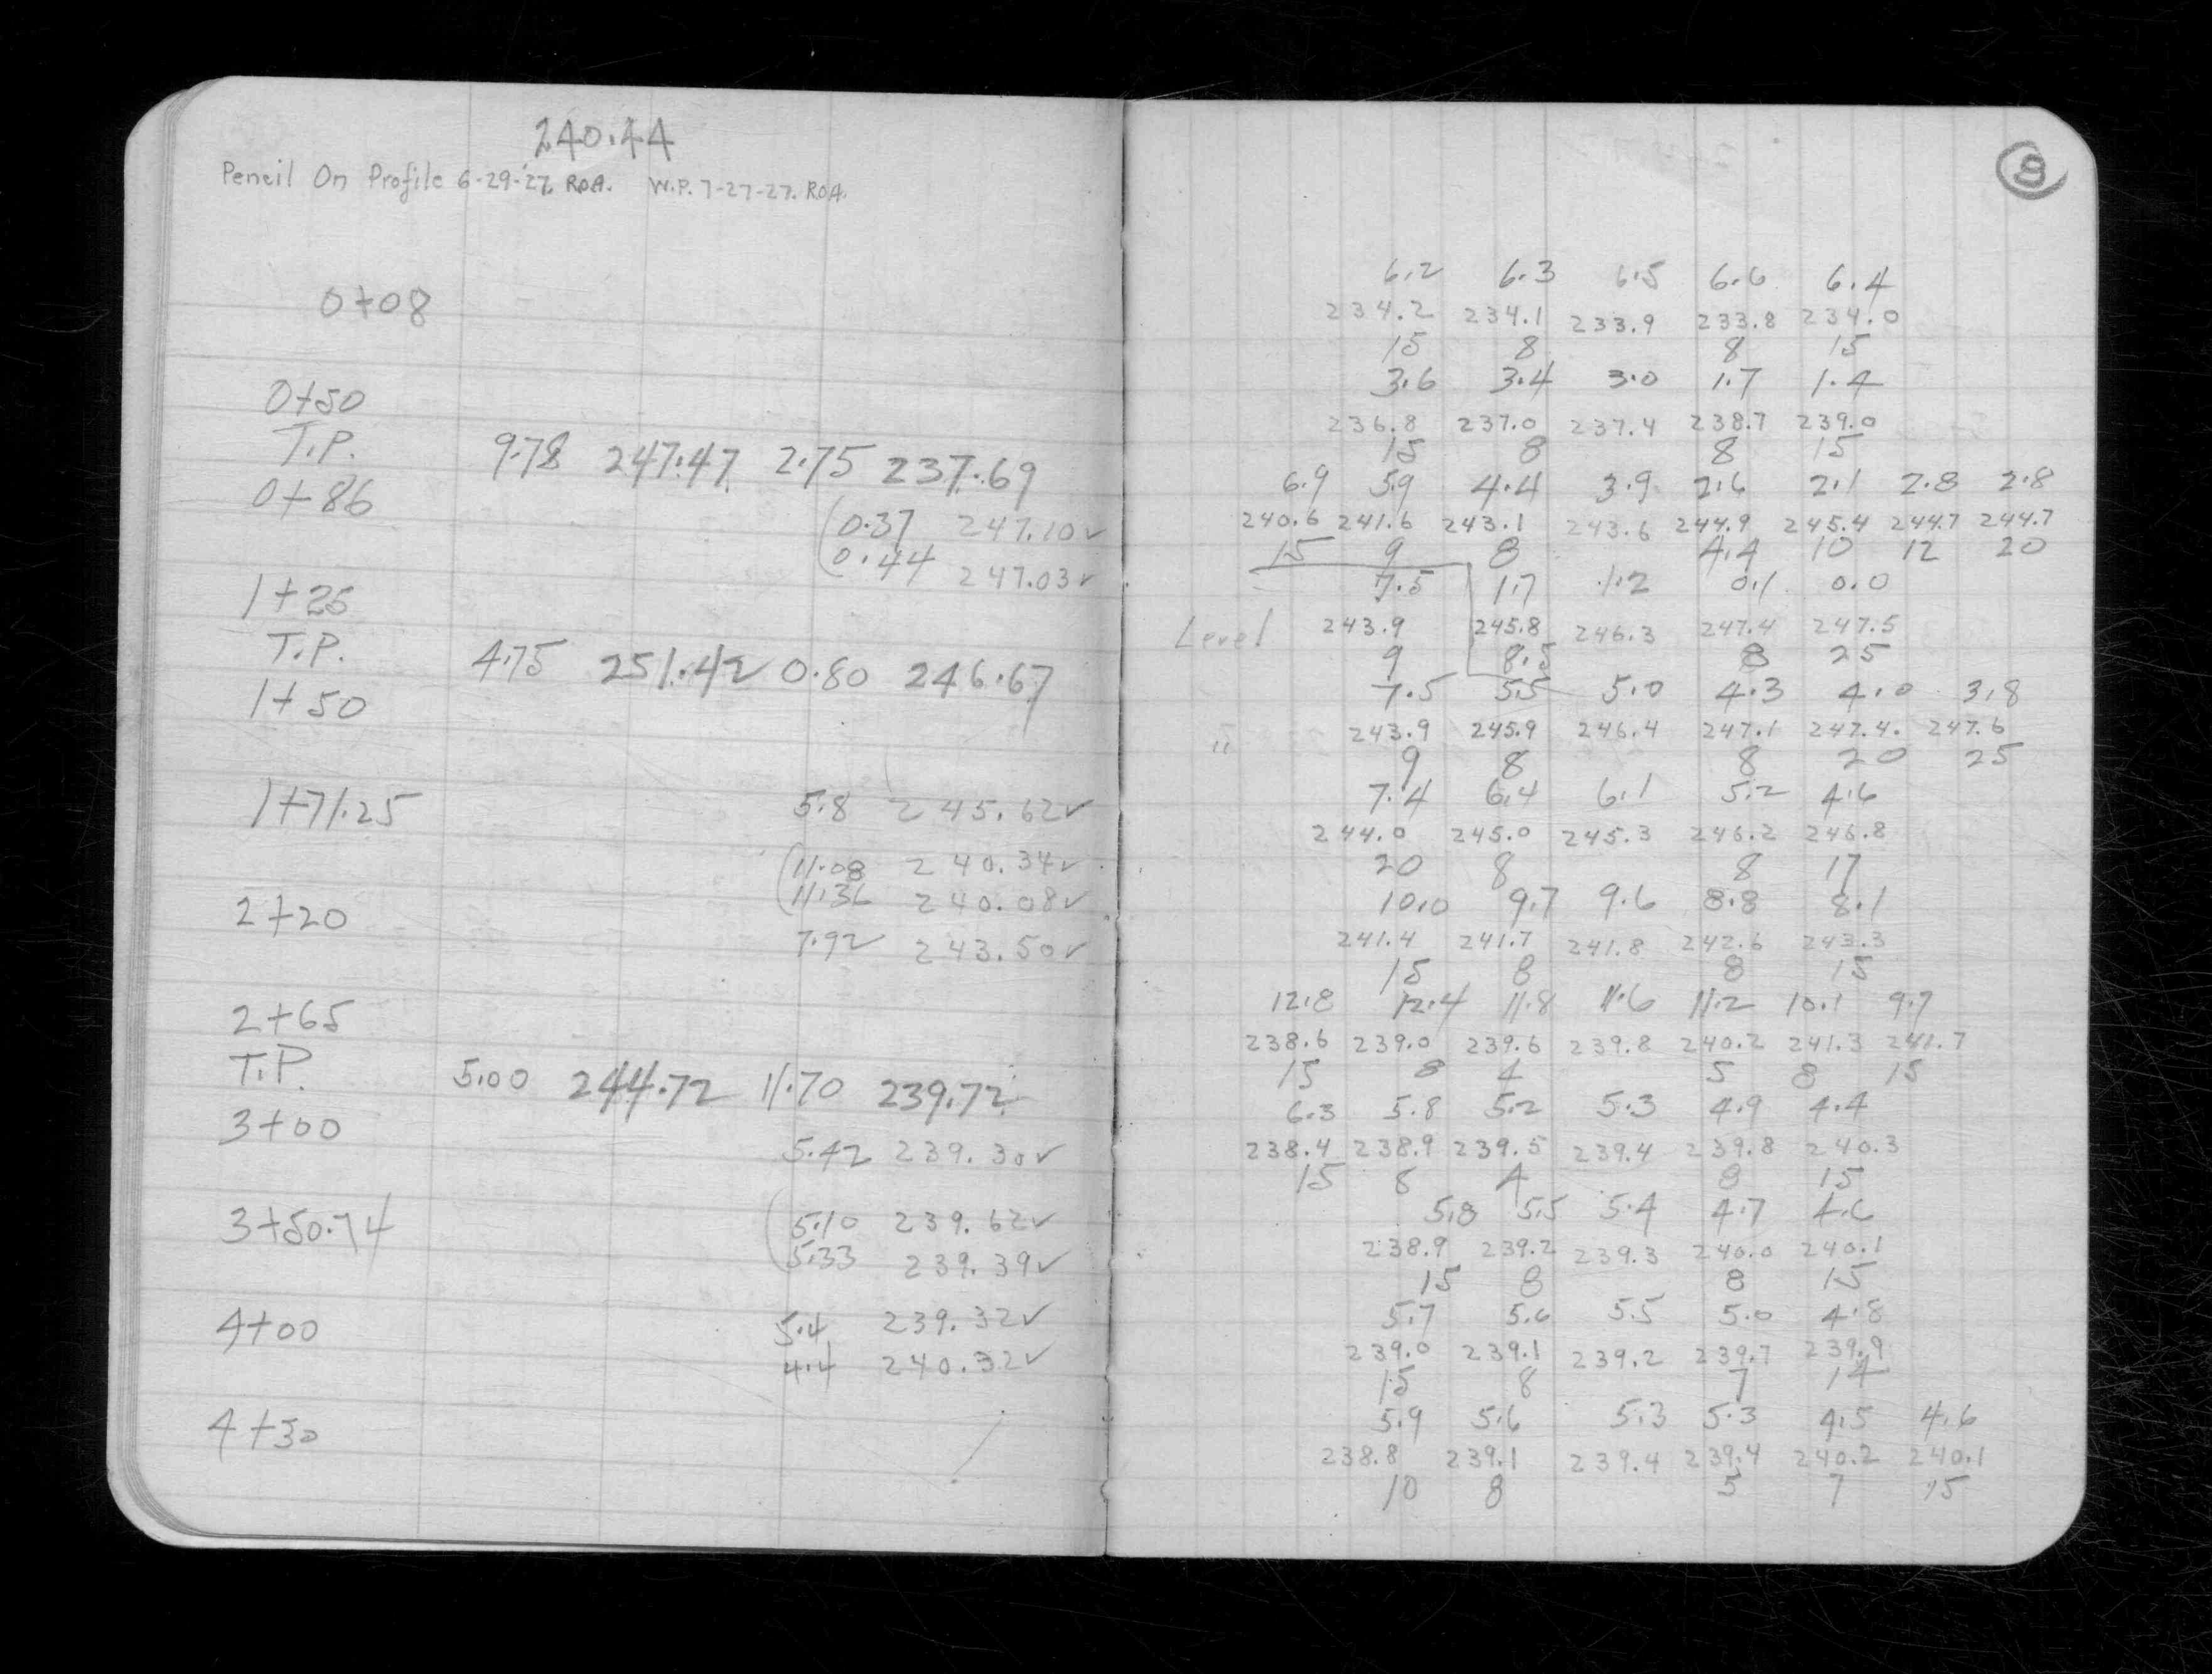 240.44
Pencil On Profile 6-29-'27. R.O.A. W.P. 7-27-27. R.O.A.
0+08
0+50
T.P. 9.78 247.47 2.75 237.69
0+86
0.37 247.10✓
0.44 247.03✓
1+25
T.P. 4.75 251.42 0.80 246.67
1+50
1+71.25 5.8 245.62✓
11.08 240.34✓
2+20 11.36 240.08✓
7.92 243.50✓
2+65
T.P. 5.00 244.72 11.70 239.72
3+00
5.42 239.30✓
3+50.74 5.10 239.62✓
5.33 239.39✓
4+00 5.4 239.32✓
4.4 240.32✓
4+30
8
6.2 6.3 6.5 6.6 6.4
234.2 234.1 233.9 233.8 234.0
15 8 8 15
3.6 3.4 3.0 1.7 1.4
236.8 237.0 237.4 238.7 239.0
15 8 8 15
6.9 5.9 4.4 3.9 2.6 2.1 2.8 2.8
240.6 241.6 243.1 243.6 244.9 245.4 244.7 244.7
15 9 8 4.4 10 12 20
7.5 1.7 1.2 0.1 0.0
Level 243.9 245.8 246.3 247.4 247.5
9 8.5 8 25
7.5 5.5 5.0 4.3 4.0 3.8
" 243.9 245.9 246.4 247.1 247.4 247.6
9 8 8 20 25
7.4 6.4 6.1 5.2 4.6
244.0 245.0 245.3 246.2 246.8
20 8 8 17
10.0 9.7 9.6 8.8 8.1
241.4 241.7 241.8 242.6 243.3
15 8 8 15
12.8 12.4 11.8 11.6 11.2 10.1 9.7
238.6 239.0 239.6 239.8 240.2 241.3 241.7
15 8 4 5 8 15
6.3 5.8 5.2 5.3 4.9 4.4
238.4 238.9 239.5 239.4 239.8 240.3
15 8 4 8 15
5.8 5.5 5.4 4.7 4.6
238.9 239.2 239.3 240.0 240.1
15 8 8 15
5.7 5.6 5.5 5.0 4.8
239.0 239.1 239.2 239.7 239.9
15 8 7 14
5.9 5.6 5.3 5.3 4.5 4.6
238.8 239.1 239.4 239.4 240.2 240.1
10 8 5 7 15